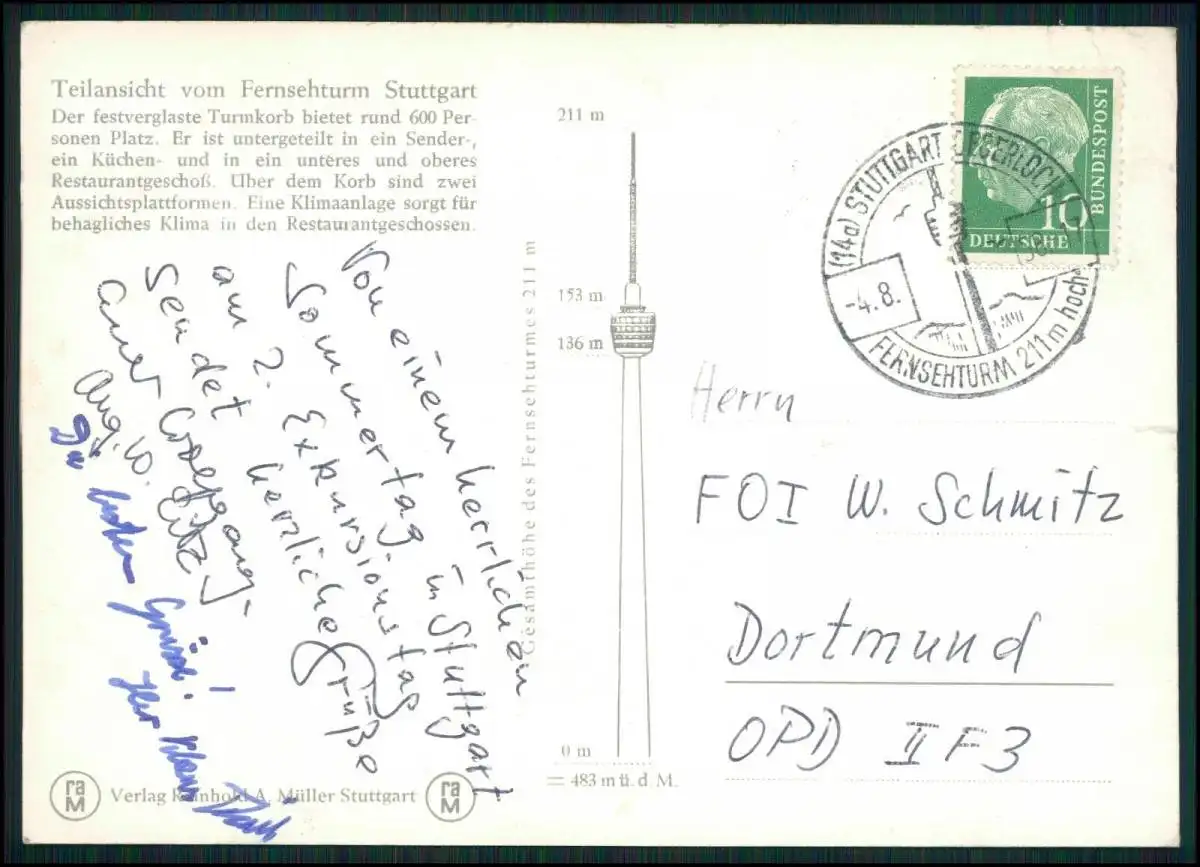 Teilansicht vom Fernsehturm Stuttgart
Der festverglaste Turmkorb bietet rund 600 Per-
sonen Platz. Er ist untergeteilt in ein Sender-,
ein Küchen- und in ein unteres und oberes
Restaurantgeschoß. Über dem Korb sind zwei
Aussichtsplattformen. Eine Klimaanlage sorgt für
behagliches Klima in den Restaurantgeschossen.
Von einem herrlichen
Sommertag in Stuttgart
am 2. Exkursionstag
sendet herzliche Grüße
Aug. W.
Grüße!
Ihr Klaus
raM
Verlag Reinhold A. Müller Stuttgart
raM
Gesamthöhe des Fernsehturmes 211 m
211 m
153 m
136 m
0 m
= 483 m ü. d. M.
DEUTSCHE
BUNDESPOST
10
(14a) STUTTGART DEGERLOCH
-4.8.
FERNSEHTURM 211m hoch
Herrn
FOI W. Schmitz
Dortmund
OPD II F3